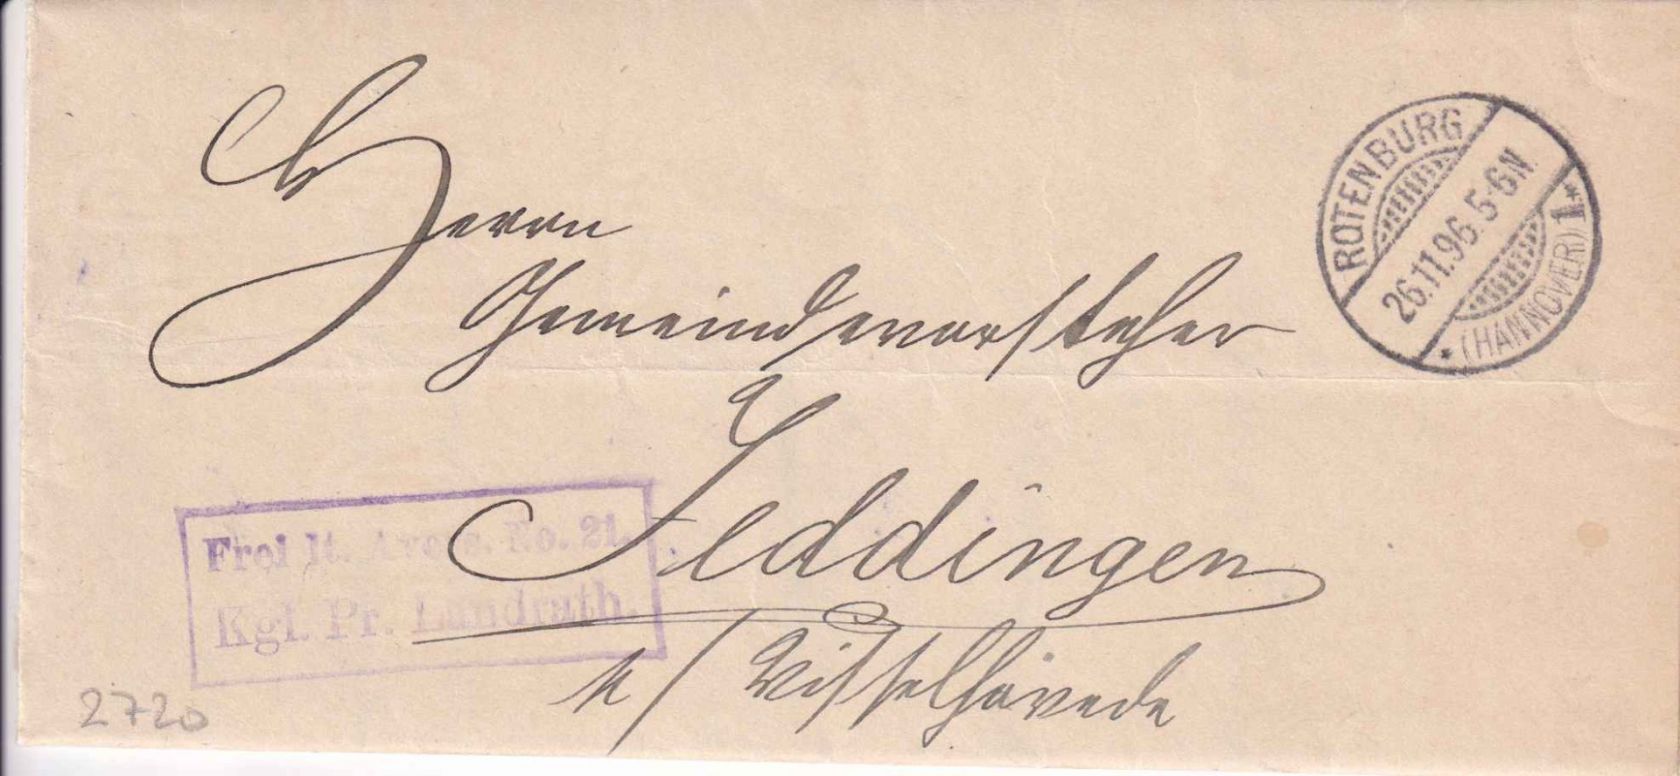 Herrn
Gemeindevorsteher
Jeddingen
b/ Visselhövede
ROTENBURG
26.11.96.5-6N.
* (HANNOVER) 1 *
Frei lt. Avers. No. 21.
Kgl. Pr. Landrath.
2720